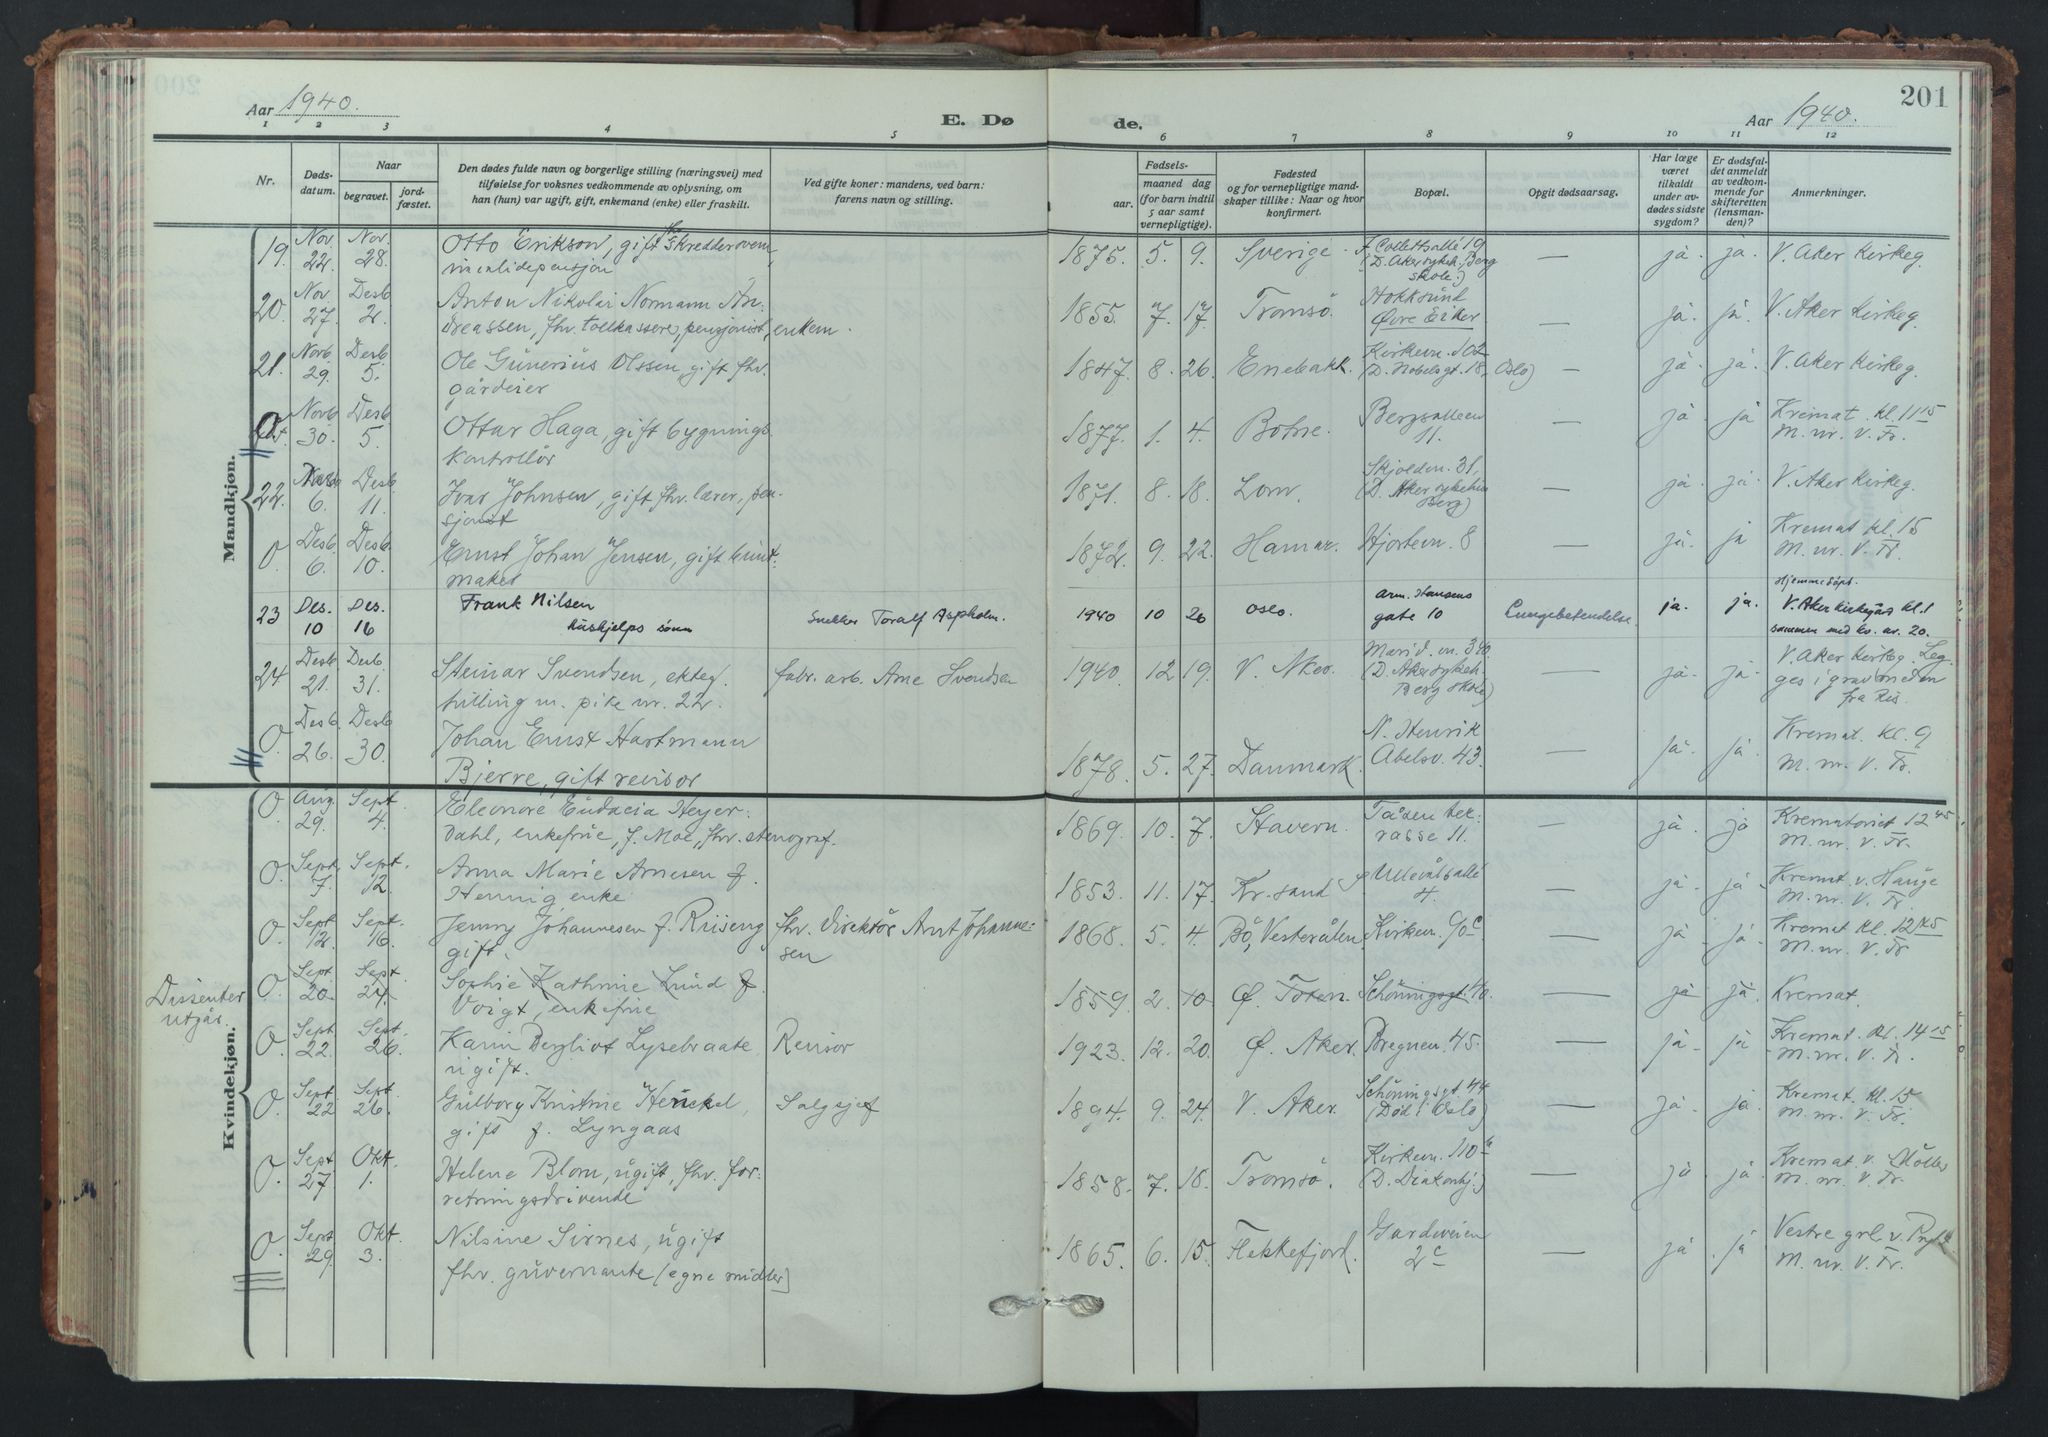 Aar 1940.
E. Døde.
201
Aar 1940.
1 2 3 4 5 6 7 8 9 10 11 12
Nr.
Døds-
datum.
Naar
begravet.
jord-
fæstet.
Den dødes fulde navn og borgerlige stilling (næringsvei) med
tilføielse for voksnes vedkommende av oplysning, om
han (hun) var ugift, gift, enkemand (enke) eller fraskilt.
Ved gifte koner: mandens, ved barn:
farens navn og stilling.
Fødsels-
aar. maaned dag
(for barn indtil
5 aar samt
vernepligtige).
Fødested
og for vernepligtige mand-
skaper tillike: Naar og hvor
konfirmert.
Bopæl.
Opgit dødsaarsag.
Har læge
været
tilkaldt
under av-
dødes sidste
sygdom?
Er dødsfal-
det anmeldt
av vedkom-
mende for
skifteretten
(lensman-
den)?
Anmerkninger.
Mandkjøn.
19. Nov. 22 Nov. 28. Otto Erikson, gift fhv. skreddersvenn, 1875. 5. 9. Sverige. Colletts allé 19 — ja. ja. V. Aker Kirkeg.
invalidepensjon (D. Aker sykeh. Berg
skole.)
20. Nov. 27. Desb. 2. Anton Nikolai Normann An- 1855. 7. 17. Tromsö. Hokksund — ja. ja. V. Aker Kirkeg.
dreassen, fhv. tollkasserer, pensjonist, enkem. Övre Eiker
21. Novb. 29. Desb. 5. Ole Gunerius Olssen, gift fhv. 1847. 8. 26. Enebakk. Kirkevn. 102 — ja. ja. V. Aker Kirkeg.
gårdeier (D. Nobelsgt. 18, Oslo)
O Novb. 30. Desb. 5. Ottar Haga, gift bygnings- 1877. 1. 4. Botne. Bergsalleen — ja. ja Kremat. kl. 11 15
kontrollör 11. M. nr. V. Fr.
22. 6. Desb. 11. Ivar Johnsen, gift fhv. lærer, pen- 1871. 8. 18. Lom. Skjolden. 31, — ja. ja. V. Aker Kirkeg.
sjonist (D. Aker sykehus
Berg)
O. Desb. 6. Desb. 10. Ernst Johan Jensen, gift bunt- 1872. 9. 22. Hamar. Hjortevn. 8 — ja. ja Kremat kl. 15
maker M. nr. V. Fr.
23 Des. 10 Des. 16 Frank Nilsen Snekker Toralf Aspholm. 1940 10 26 Oslo. Arm. Hansens Lungebetendelse. ja. ja. Hjemmedöpt.
huskjelps sønn gate 10 V. Aker kirkegård kl. 1
sammen med kv. nr. 20.
24. Desb. 21. Desb. 31. Steinar Svendsen, ekteg. fabr. arb. Arne Svendsen 1940. 12 19. V. Aker. Marid. vn. 340. — ja. ja. V. Aker Kirkeg. Leg-
tvilling m. pike nr. 22. (D. Aker sykeh. ges i grav
Berg skole) fra Ris.
O. Desb. 26. Desb. 30. Johan Ernst Hartmann 1878. 5. 27. Danmark. N. Henrik — ja. ja. Kremat. kl. 9
Bjerre, gift revisor Abelsv. 43. M. nr. V. Fr.
Kvindekjøn.
O. Aug. 29. Sept. 4. Eleonore Eudacia Heyer- 1869. 10. 7. Stavern. Tåsen ter- — ja. ja Krematoriet 12 45
dahl, enkefrue, f. Moe, fhv. stenograf. rasse 11. M. nr. V. Fr.
O. Sept. 7. Sept. 12. Anna Marie Arnesen f. 1853. 11. 17. Kr. sand Ullevålsallé — ja. ja Kremat. v. Hauge
Hennig, enke 4. M. nr. V. Fr.
O. Sept 12. Sept. 16. Jenny Johannesen f. Riiseng fhv. direktör Arnt Johanne- 1868. 5. 4. Bö, Vesterålen. — ja. ja. Kremat kl. 12 45
gift. sen M. nr. V. Fr
Dissenter
utgår.
O. Sept 20. Sept 24. Sophie Kathrine Lund f. 1859. 2. 10. Ö. Toten. Schöningsgt. 40. — ja ja. Kremat.
Voigt, enkefrue
O. Sept 22. Sept. 26. Karin Bergliot Lysebraate, Revisor 1923. 12. 20. Ö. Aker. Bregnen. 45. — ja. ja Kremat. kl. 14 15
ugift. M. nr. V. Fr.
O. Sept. 22 Sept. 26. Gulborg Kristine Henckel, Salgssjef 1894. 9. 24. V. Aker. Schöningsgt 44 — ja. ja. Kremat. kl. 15
gift f. Lyngaas (Död i Oslo) M. nr. V. Fr.
O. Sept 27 Okt. 1. Helene Blom, ugift, fhv. for- 1858. 7. 18. Tromsö. Kirkevn. 110 — ja. ja. Kremat. v. Möller
retningsdrivende (D. Diakonhj.) M. nr. V. Fr.
O. Sept 29. Okt 3. Nilsine Sirnes, ugift 1865. 6. 15. Flekkefjord. Gardeveien — ja. ja Vestre grl. v.
fhv. guvernante (egne midler) 2 c M. nr. V. Fr.